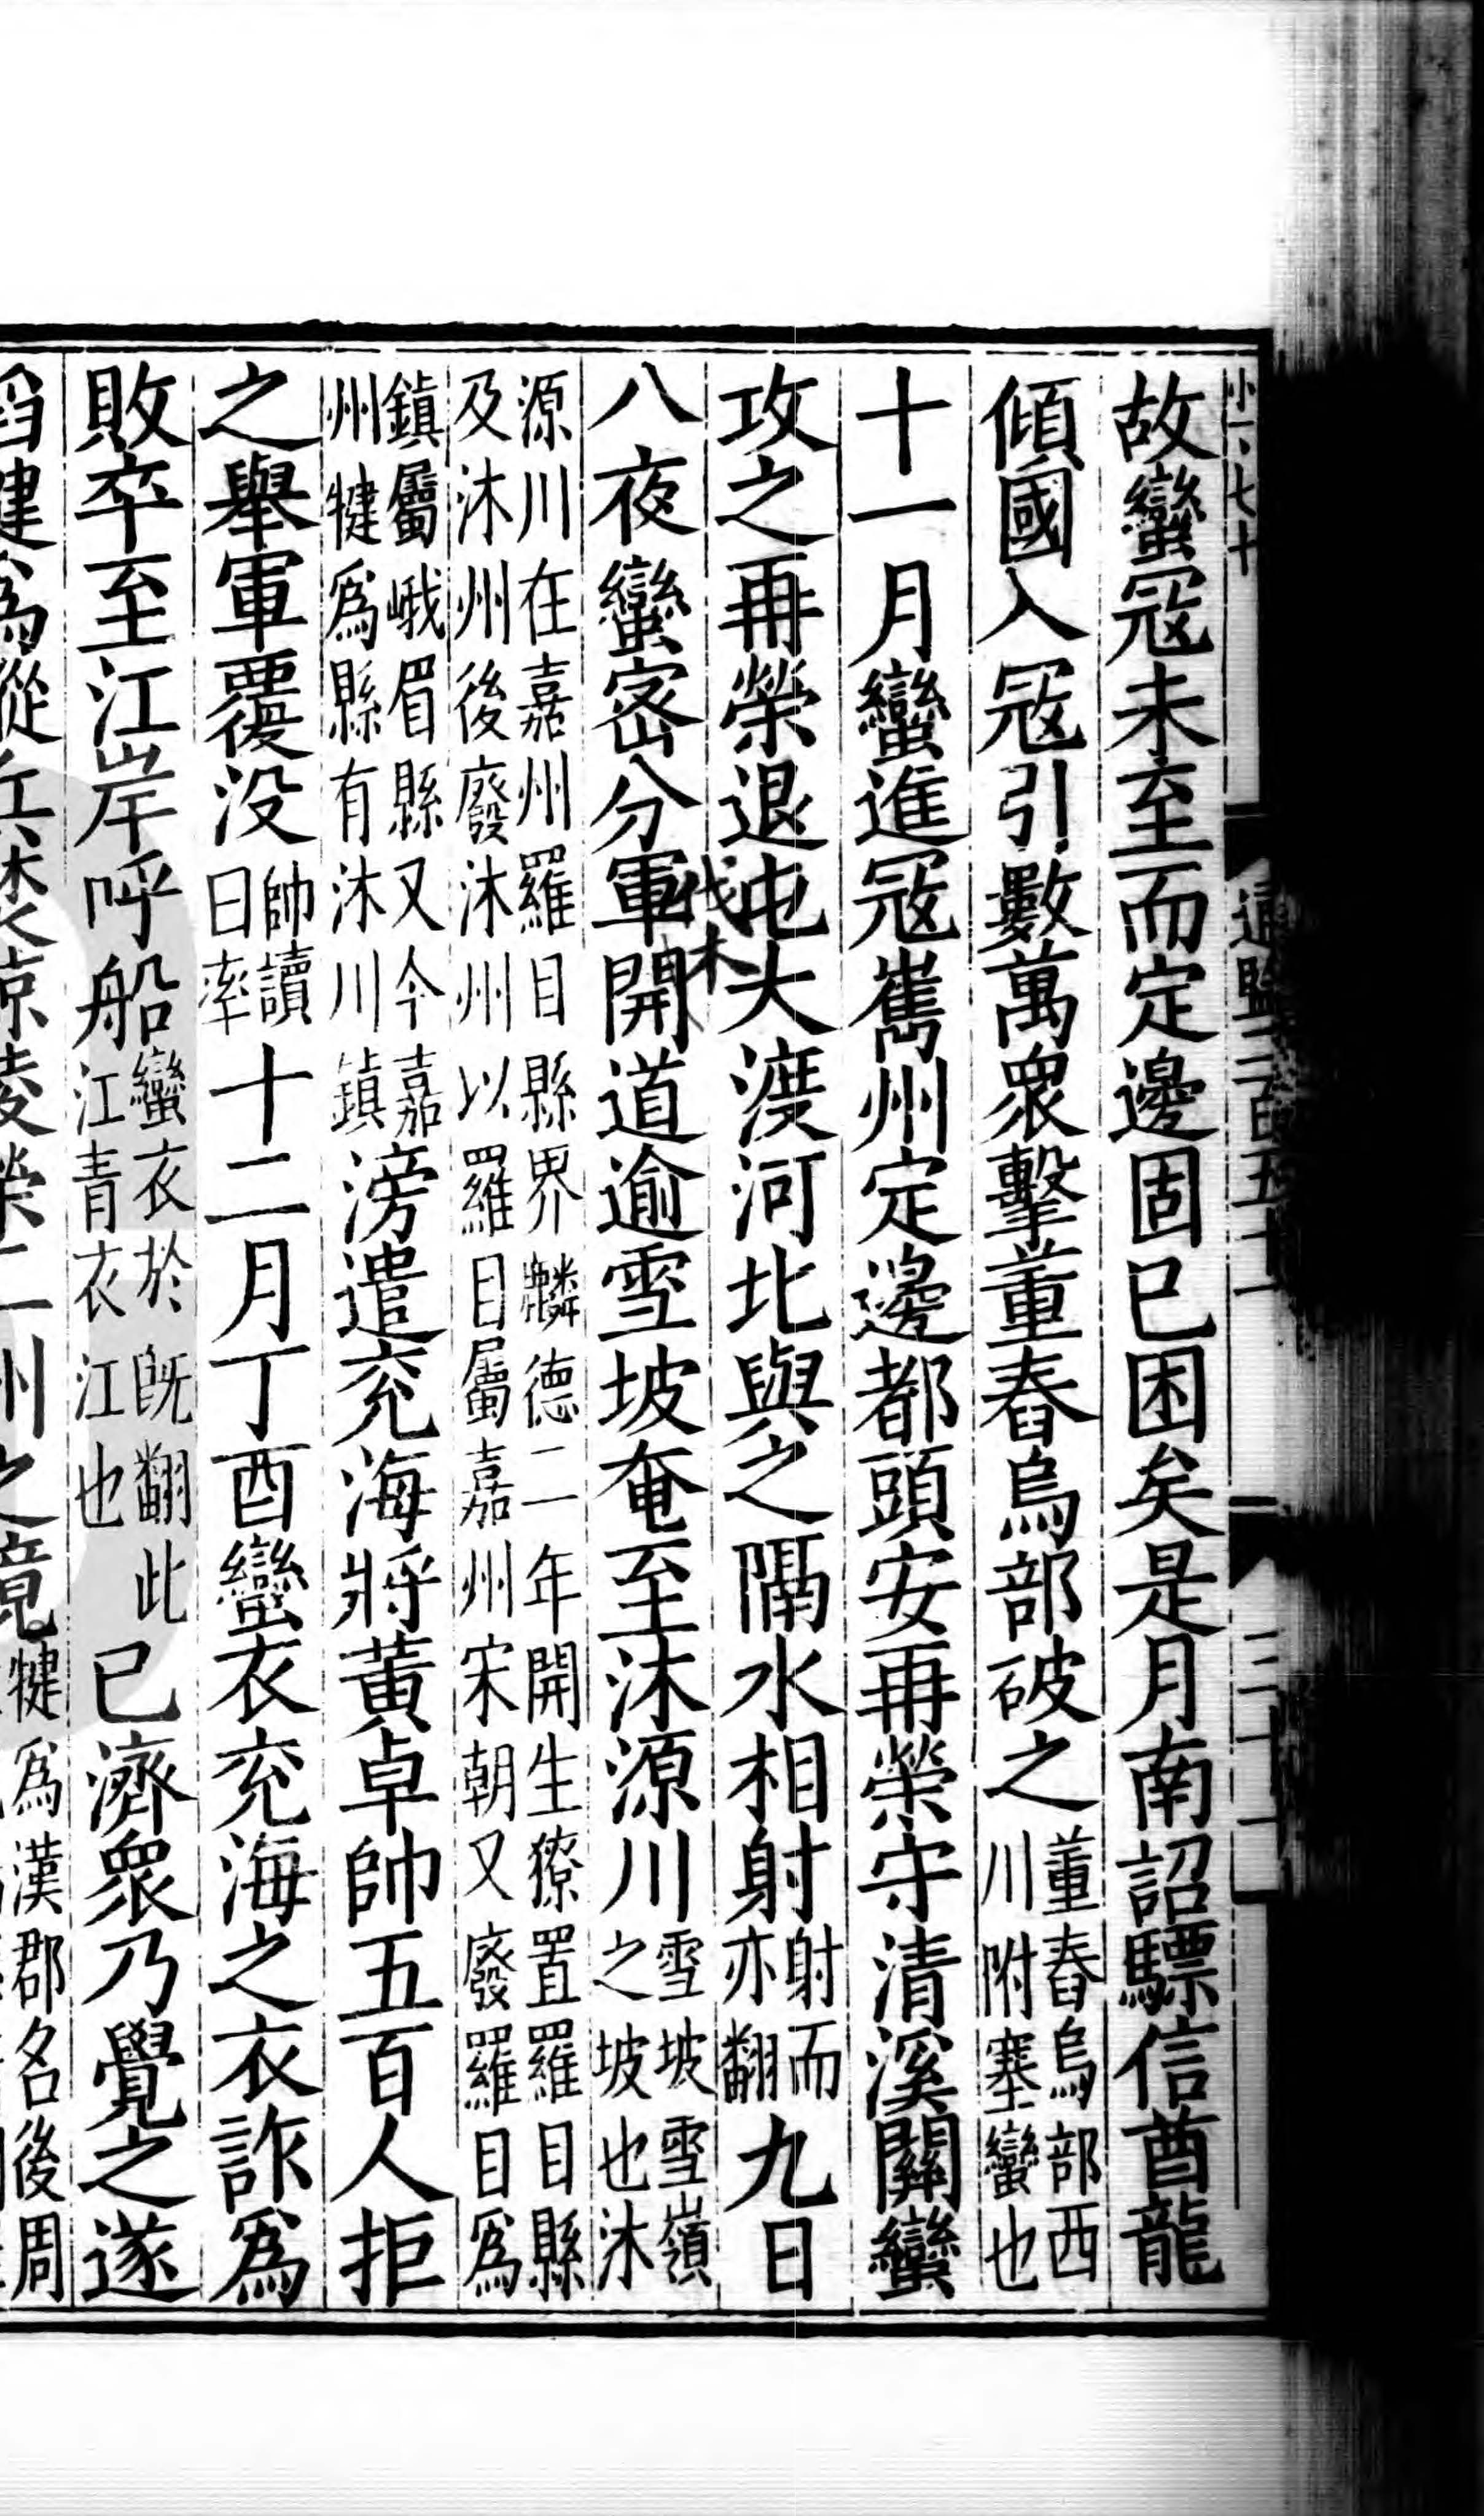 故蠻冦未至而定邊固已困矣是月南詔驃信酋龍
傾國入冦引數萬衆擊董舂烏部破之董舂烏部西川附塞蠻也
十一月蠻進冦嶲州定邊都頭安再榮守清溪關蠻
攻之再榮退屯大渡河北與之隔水相射射而亦翻九日
八夜蠻宻分軍開道逾雪坡奄至沐源川雪坡雪嶺之坡也沐
伐木
源川在嘉州羅目縣界麟德二年開生獠置羅目縣及沐州後廢沐州以羅目屬嘉州宋朝又廢羅目爲
鎮屬峨眉縣又今嘉州犍爲縣有沐川鎮滂遣兖海將黃卓帥五百人拒
之舉軍覆没帥讀曰率十二月丁酉蠻衣兖海之衣詐爲
敗卒至江岸呼船蠻衣於旣翻此江青衣江也已濟衆乃覺之遂
犍爲漢郡名後周